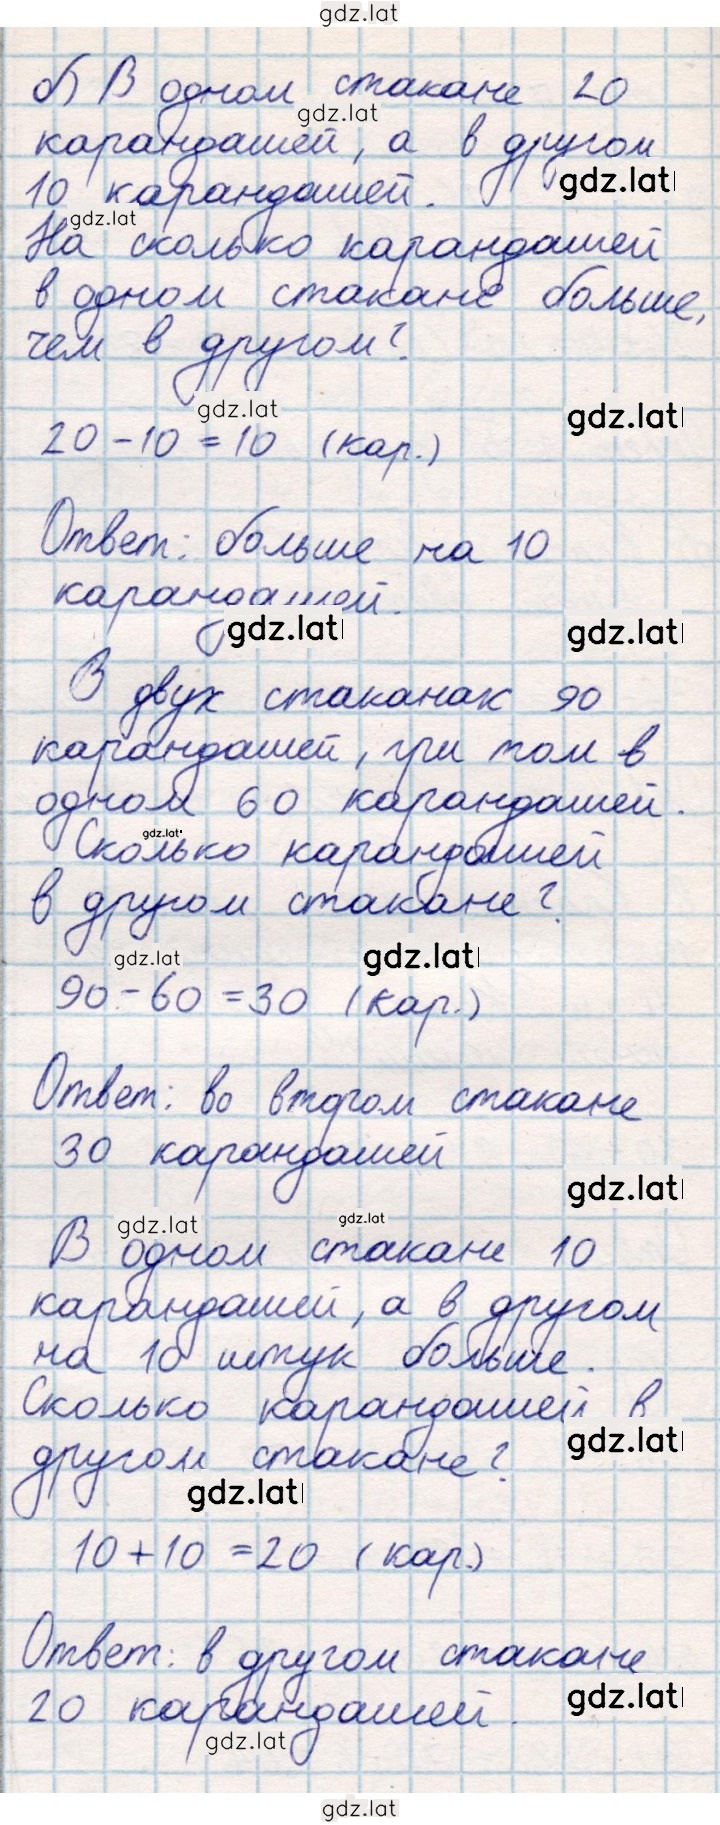 gdz.lat
б) В одном стакане 20
gdz.lat
карандашей, а в другом
10 карандашей.
gdz.lat
gdz.lat
На сколько карандашей
в одном стакане больше,
чем в другом?
gdz.lat
gdz.lat
20 - 10 = 10 (кар.)
Ответ: больше на 10
карандашей.
gdz.lat
gdz.lat
В двух стаканак 90
карандашей, при том в
одном 60 карандашей.
gdz.lat
Сколько карандашей
в другом стакане?
gdz.lat
gdz.lat
90 - 60 = 30 (кар.)
Ответ: во втором стакане
30 карандашей
gdz.lat
gdz.lat
gdz.lat
В одном стакане 10
карандашей, а в другом
на 10 штук больше.
Сколько карандашей в
gdz.lat
другом стакане?
gdz.lat
10 + 10 = 20 (кар.)
Ответ: в другом стакане
gdz.lat
20 карандашей.
gdz.lat
gdz.lat